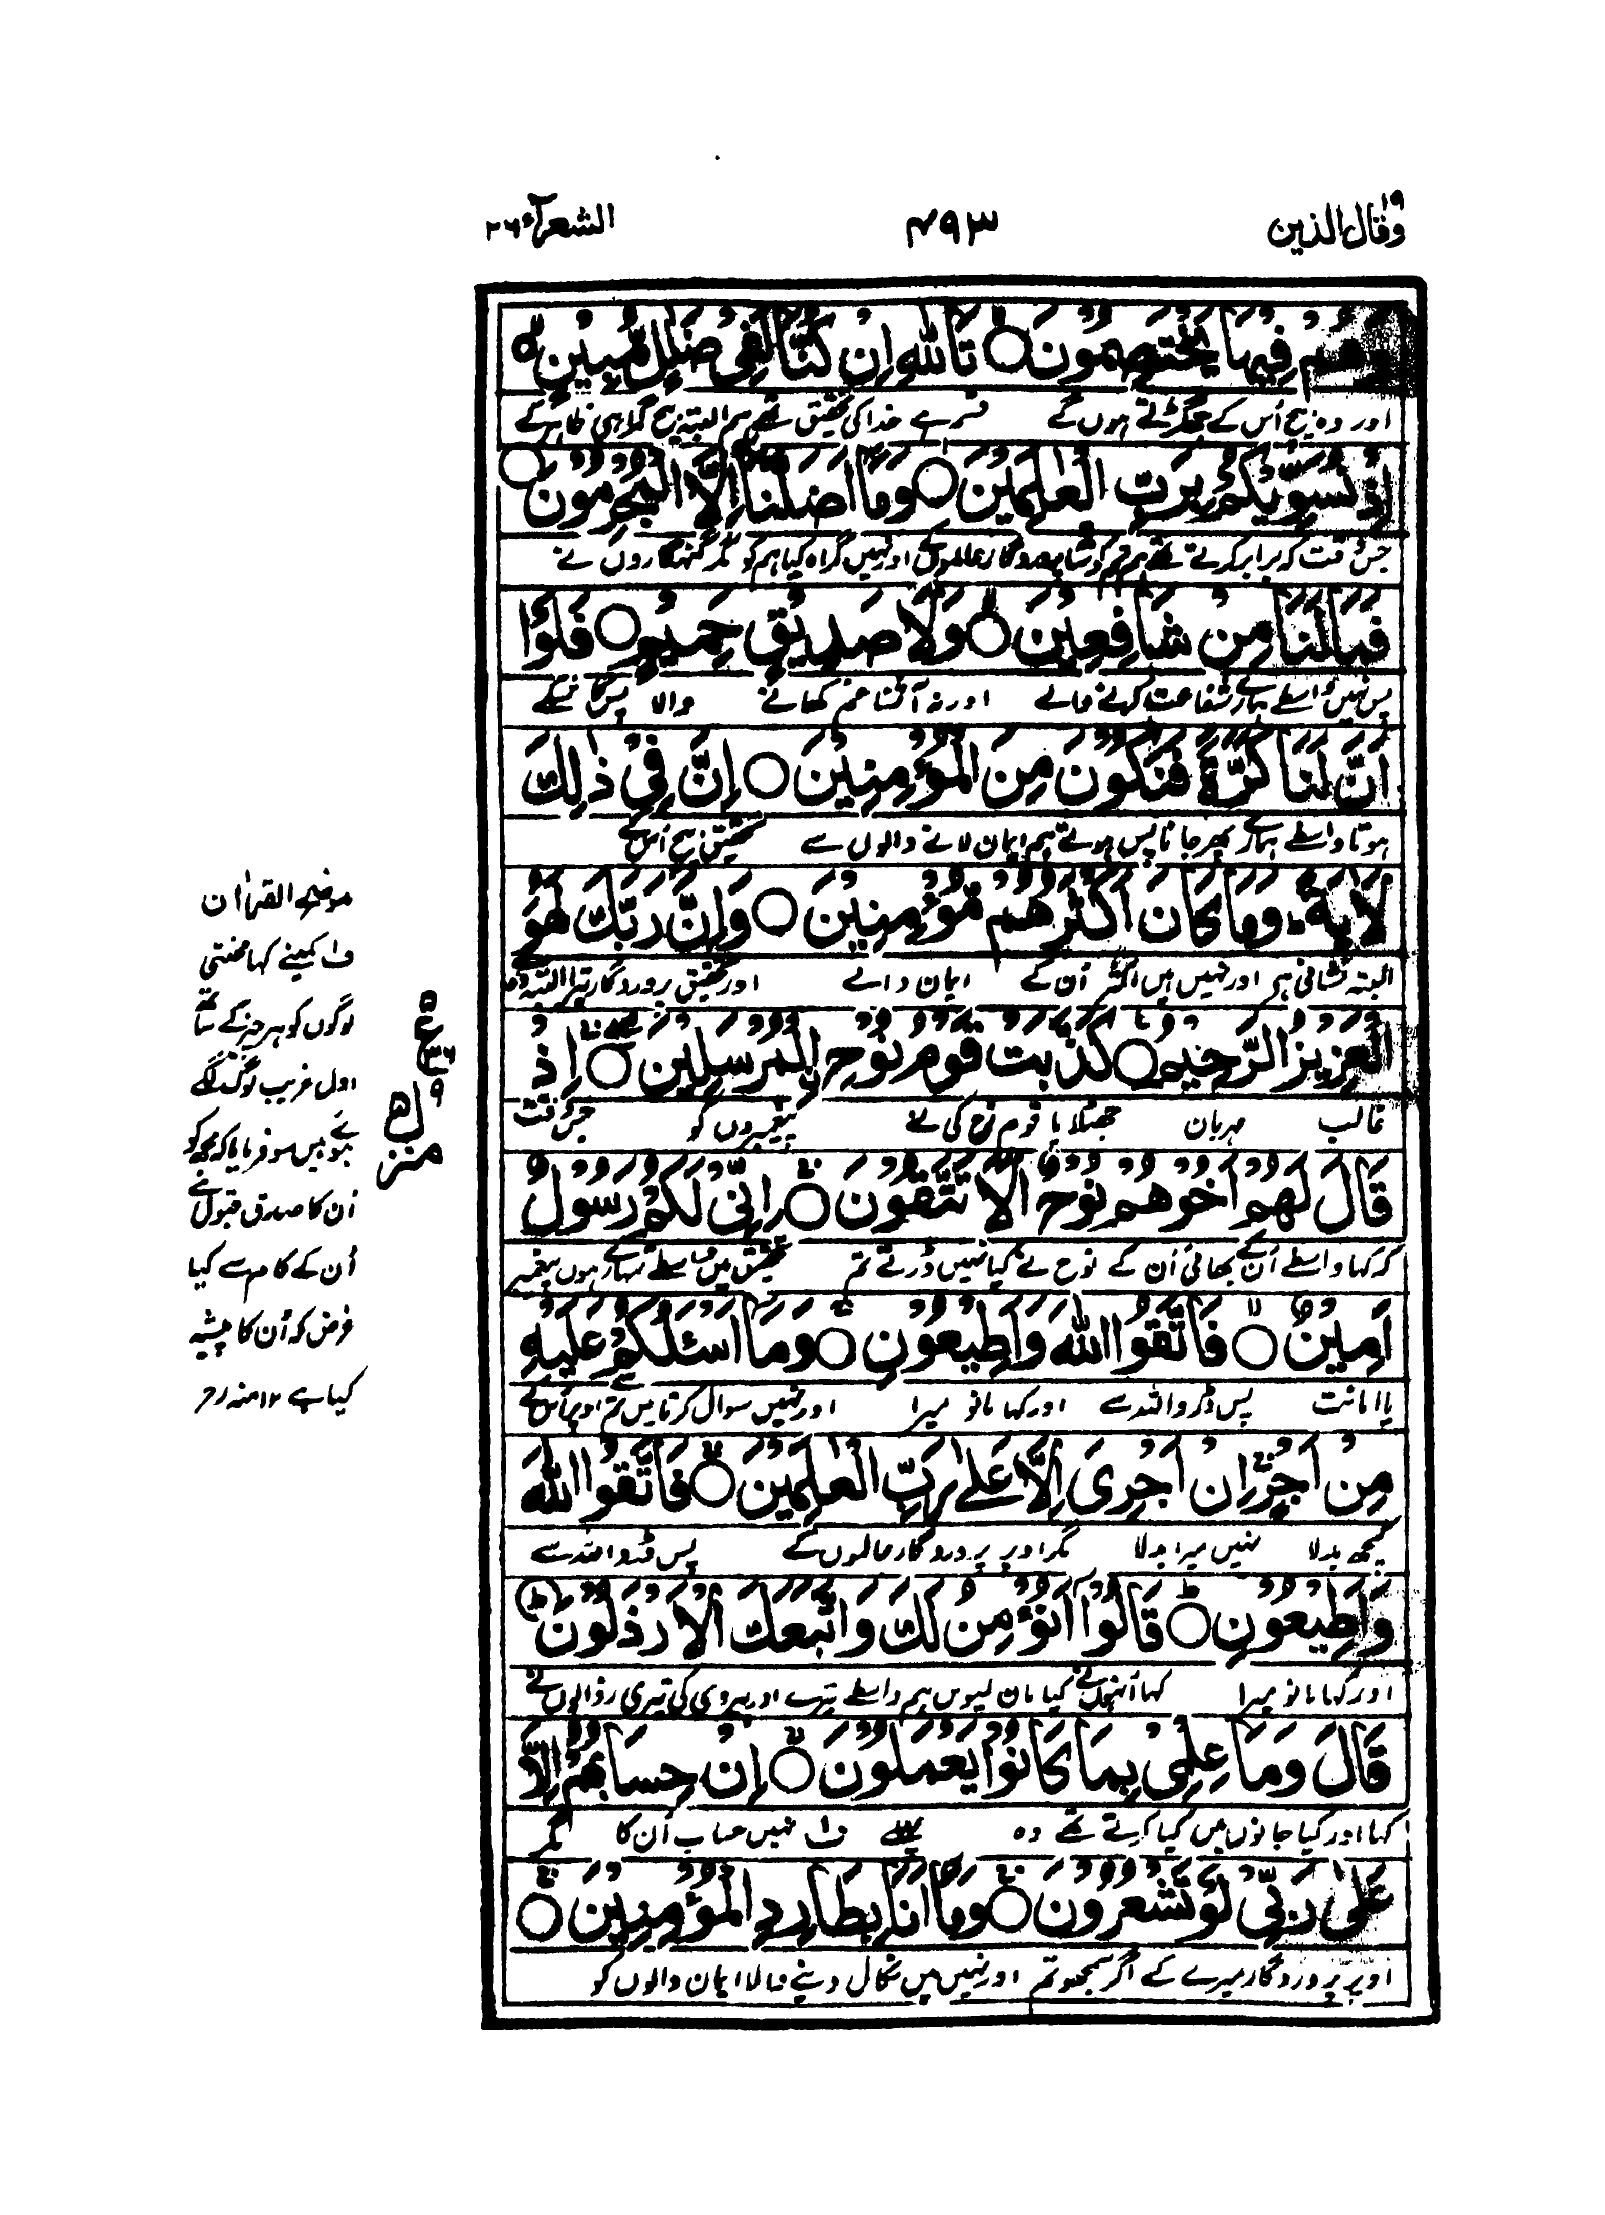 وقال الذین ۱۹
۴۹۳
الشعرآء ۲۶
وَهُمْ فِيْهَا يَخْتَصِمُوْنَ ۝ تَاللّٰهِ اِنْ كُنَّا لَفِيْ ضَلٰلٍ مُّبِيْنٍ ۝
اور وہ بیچ اُس کے جھگڑتے ہوں گے قسم ہے خدا کی تحقیق تھے ہم البتہ بیچ گمراہی ظاہر کے
اِذْ نُسَوِّيْكُمْ بِرَبِّ الْعٰلَمِيْنَ ۝ وَمَآ اَضَلَّنَآ اِلَّا الْمُجْرِمُوْنَ ۝
جس وقت کہ برابر کرتے تھے ہم تم کو ساتھ پروردگار عالموں کے اور نہیں گمراہ کیا ہم کو مگر گنہگاروں نے
فَمَا لَنَا مِنْ شَافِعِيْنَ ۝ وَلَا صَدِيْقٍ حَمِيْمٍ ۝ فَلَوْ
پس نہیں واسطے ہمارے شفاعت کرنے والے اور نہ آشنا غم کھانے والا پس کاش کے
اَنَّ لَنَا كَرَّةً فَنَكُوْنَ مِنَ الْمُؤْمِنِيْنَ ۝ اِنَّ فِيْ ذٰلِكَ
ہوتا واسطے ہمارے پھر جانا پس ہوتے ہم ایمان لانے والوں سے تحقیق بیچ اُس کے
لَاٰيَةً ؕ وَمَا كَانَ اَكْثَرُهُمْ مُّؤْمِنِيْنَ ۝ وَاِنَّ رَبَّكَ لَهُوَ
البتہ نشانی ہے اور نہیں ہیں اکثر اُن کے ایمان والے اور تحقیق پروردگار تیرا البتہ وہ
الْعَزِيْزُ الرَّحِيْمُ ۝ كَذَّبَتْ قَوْمُ نُوْحِ اِلْمُرْسَلِيْنَ ۝ اِذْ
غالب مہربان جھٹلایا قوم نوح کی نے پیغمبروں کو جس وقت
قَالَ لَهُمْ اَخُوْهُمْ نُوْحٌ اَلَا تَتَّقُوْنَ ۝ اِنِّيْ لَكُمْ رَسُوْلٌ
کہ کہا واسطے اُن کے بھائی اُن کے نوح نے کیا نہیں ڈرتے تم تحقیق میں واسطے تمہارے ہوں پیغمبر
اَمِيْنٌ ۝ فَاتَّقُوا اللّٰهَ وَاَطِيْعُوْنِ ۝ وَمَآ اَسْـَٔلُكُمْ عَلَيْهِ
باامانت پس ڈرو اللہ سے اور کہا مانو میرا اور نہیں سوال کرتا میں تم اوپر اُس کے
مِنْ اَجْرٍ اِنْ اَجْرِيَ اِلَّا عَلٰى رَبِّ الْعٰلَمِيْنَ ۝ فَاتَّقُوا اللّٰهَ
کچھ بدلا نہیں میرا بدلا مگر اوپر پروردگار عالموں کے پس ڈرو اللہ سے
وَاَطِيْعُوْنِ ۝ قَالُوْٓا اَنُؤْمِنُ لَكَ وَاتَّبَعَكَ الْاَرْذَلُوْنَ ۝
اور کہا مانو میرا کہا اُنہوں نے کیا مان لیویں ہم واسطے تیرے اور پیروی کی تیری رذالوں نے
قَالَ وَمَا عِلْمِيْ بِمَا كَانُوْا يَعْمَلُوْنَ ۝ اِنْ حِسَابُهُمْ اِلَّا
کہا اور کیا جانوں میں کیا کرتے تھے وہ ف۱ نہیں حساب اُن کا مگر
عَلٰى رَبِّيْ لَوْ تَشْعُرُوْنَ ۝ وَمَآ اَنَا بِطَارِدِ الْمُؤْمِنِيْنَ ۝
اوپر پروردگار میرے کے اگر سمجھو تم اور نہیں میں نکال دینے والا ایمان والوں کو
۵
ع
۳۶
۹
منزل ۵
موضح القرآن
ف۱ کمینے کہا محنتی
لوگوں کو ہر چیز کے ساتھ
اول غریب لوگ لگے
ہوئے ہیں سو فرمایا کہ مجھ کو
اُن کا صدق قبول ہے
اُن کے کام سے کیا
غرض کہ اُن کا پیشہ
کیا ہے ۱۲ منہ رح